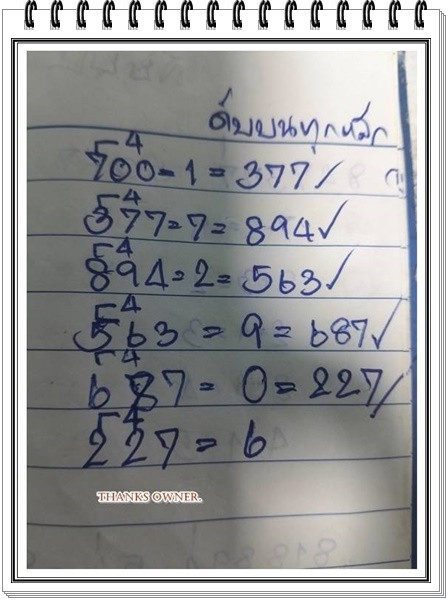 ดับบนทุกหลัก
4
700-1=377/
4
377=7=894✓
4
894=2=563✓
4
563=9=687✓
4
687=0=227/
4
227=6
THANKS OWNER.